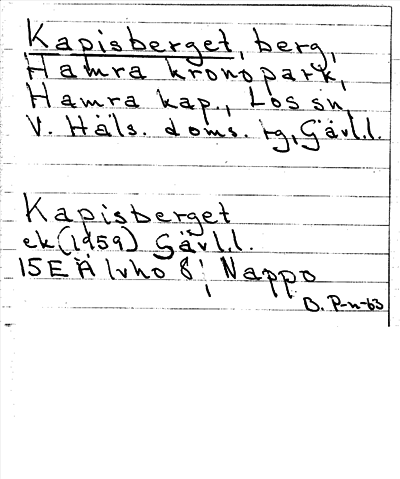 Kapisberget, berg,
Hamra kronopark,
Hamra kap., Los sn,
V. Häls. doms. tg, Gävl.l.
Kapisberget
ek (1959) Gävl.l.
15E Älvho 8; Nappo
B. P-n-63